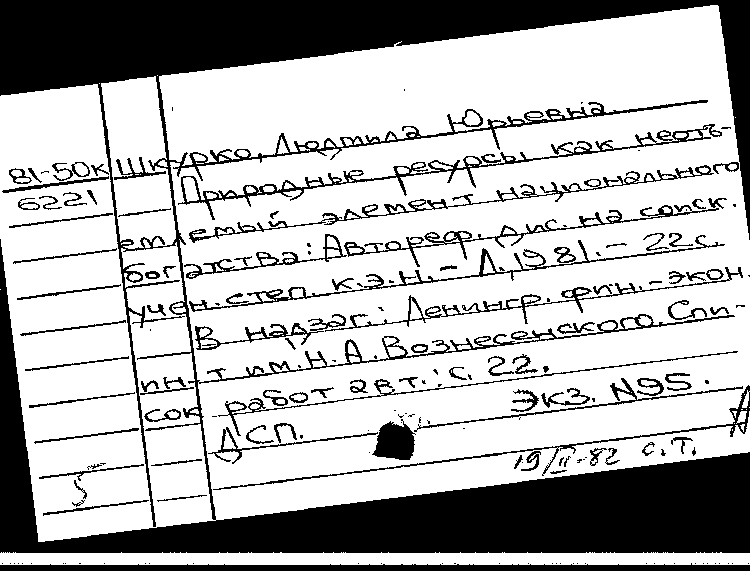 81-50к Шкурко, Людмила Юрьевна.
6221 Природные ресурсы как неотъ-
емлемый элемент национального
богатства: Автореф. дис. на соиск.
учен. степ. к.э.н. - Л., 1981. - 22 с.
В надзаг.: Ленингр. фин.-экон.
ин-т им. Н. А. Вознесенского. Спи-
сок работ авт.: с. 22.
ДСП. Экз. N95.
5 19/II-82 с. т.